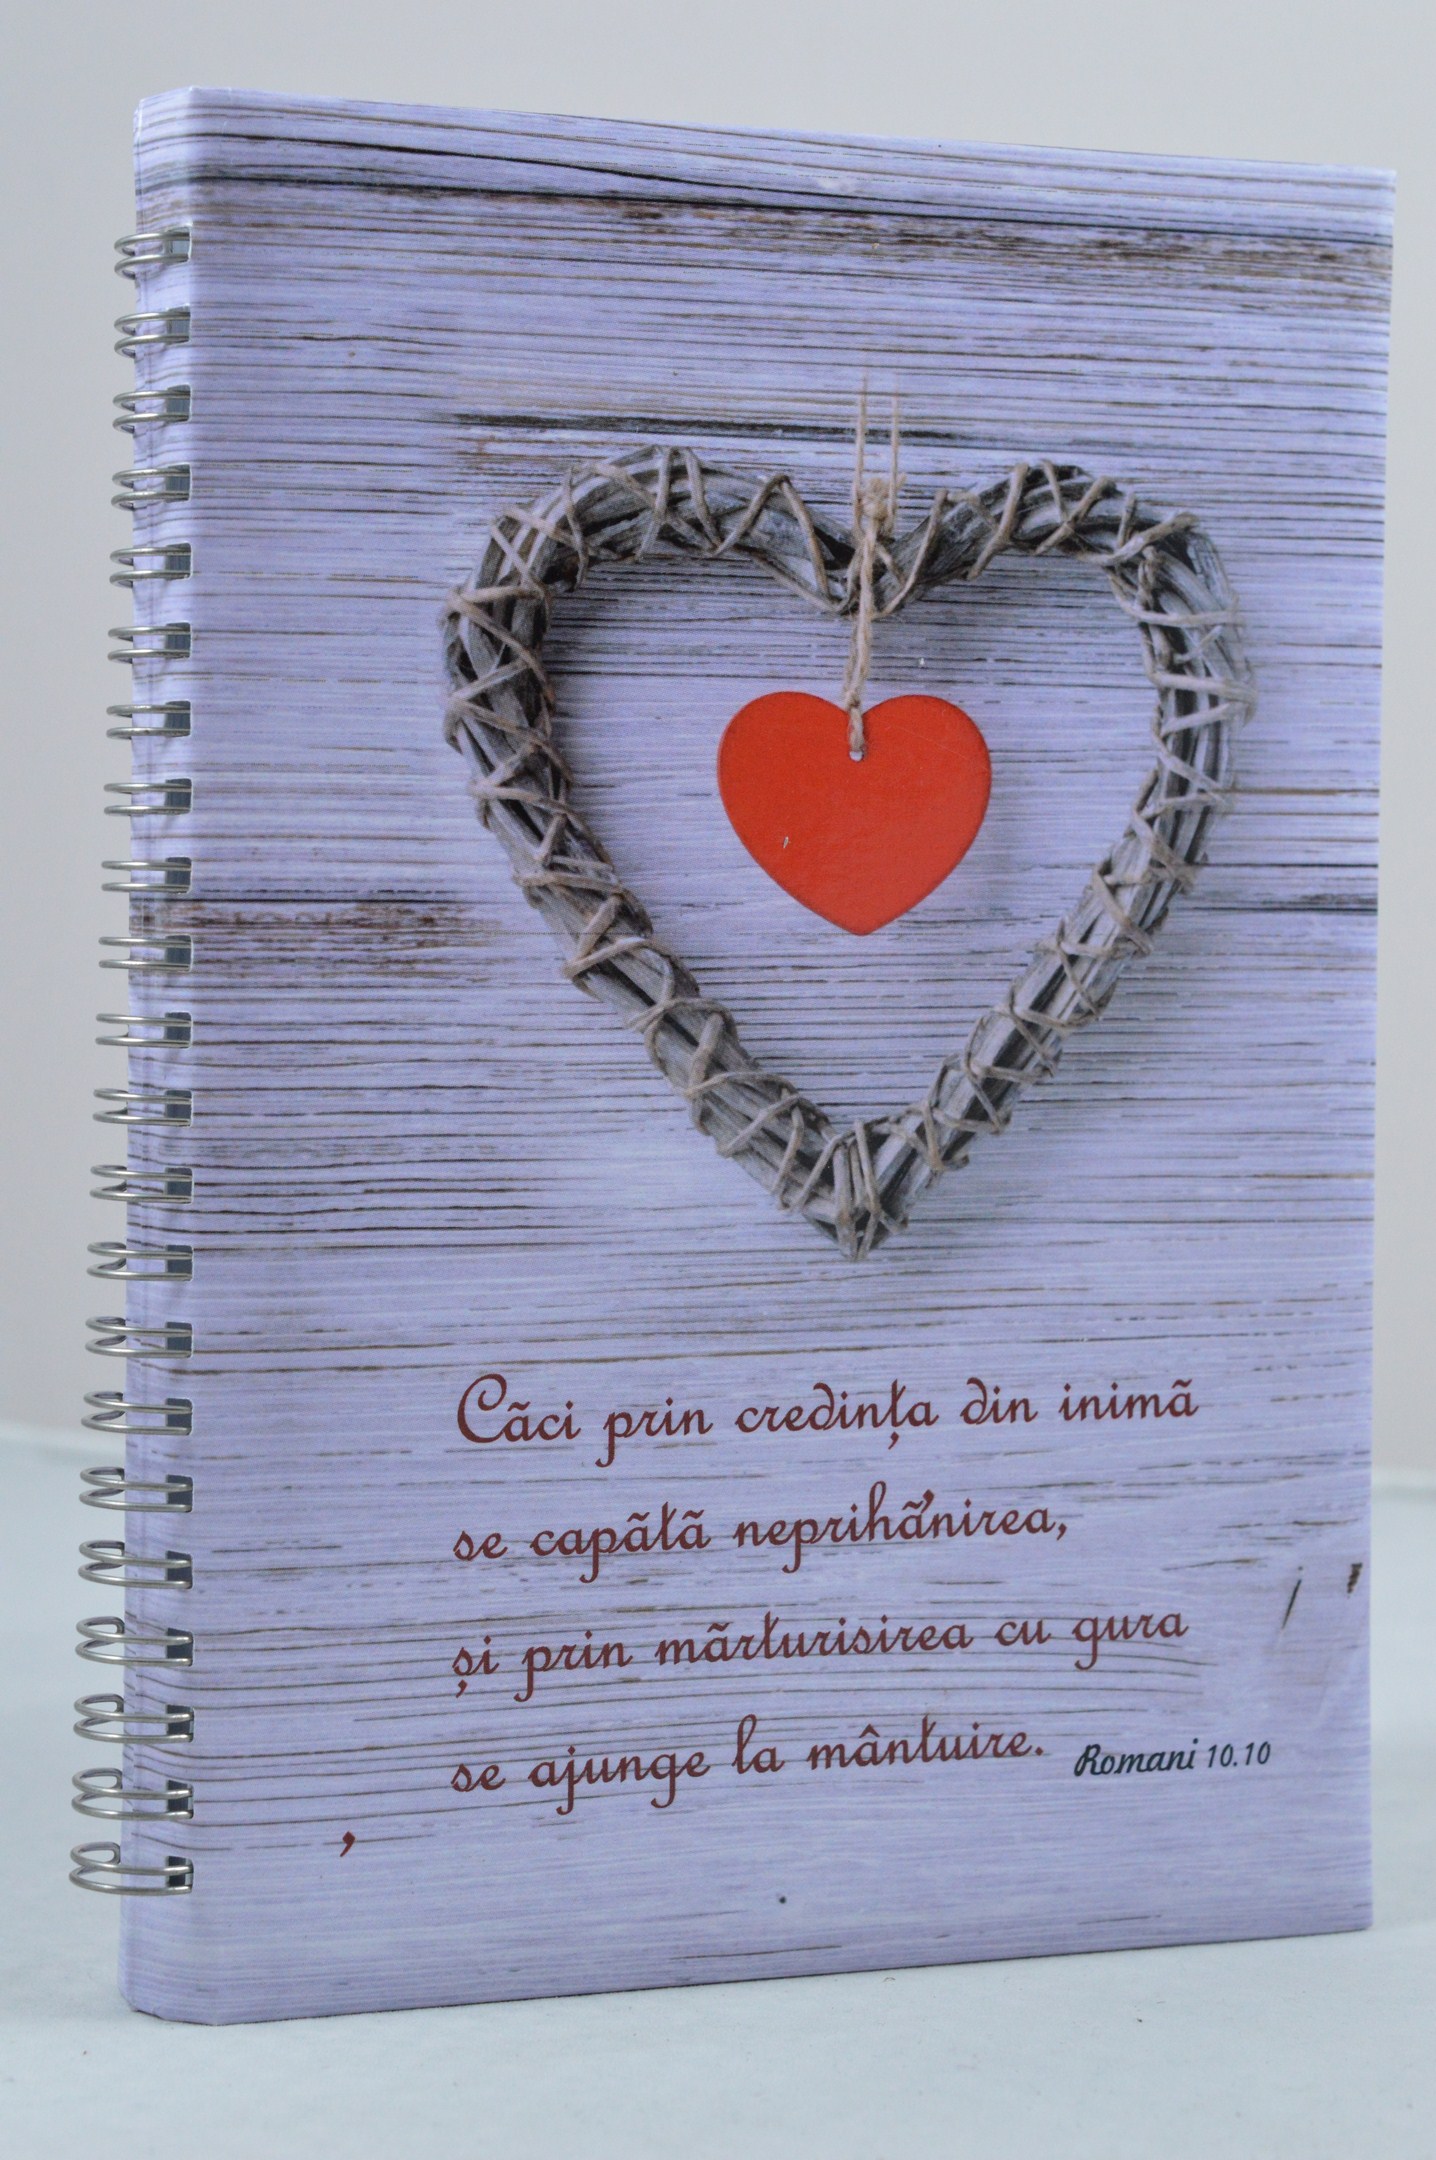 Cãci prin credinţa din inimã
se capãtã neprihã'nirea,
şi prin mãrturisirea cu gura
se ajunge la mântuire.
Romani 10.10
,